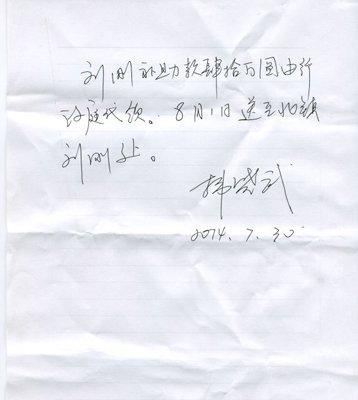 刘刚补助款肆拾万圆由行
政庭代领。8月1日送至北镇
刘刚处。
武
2014.7.30